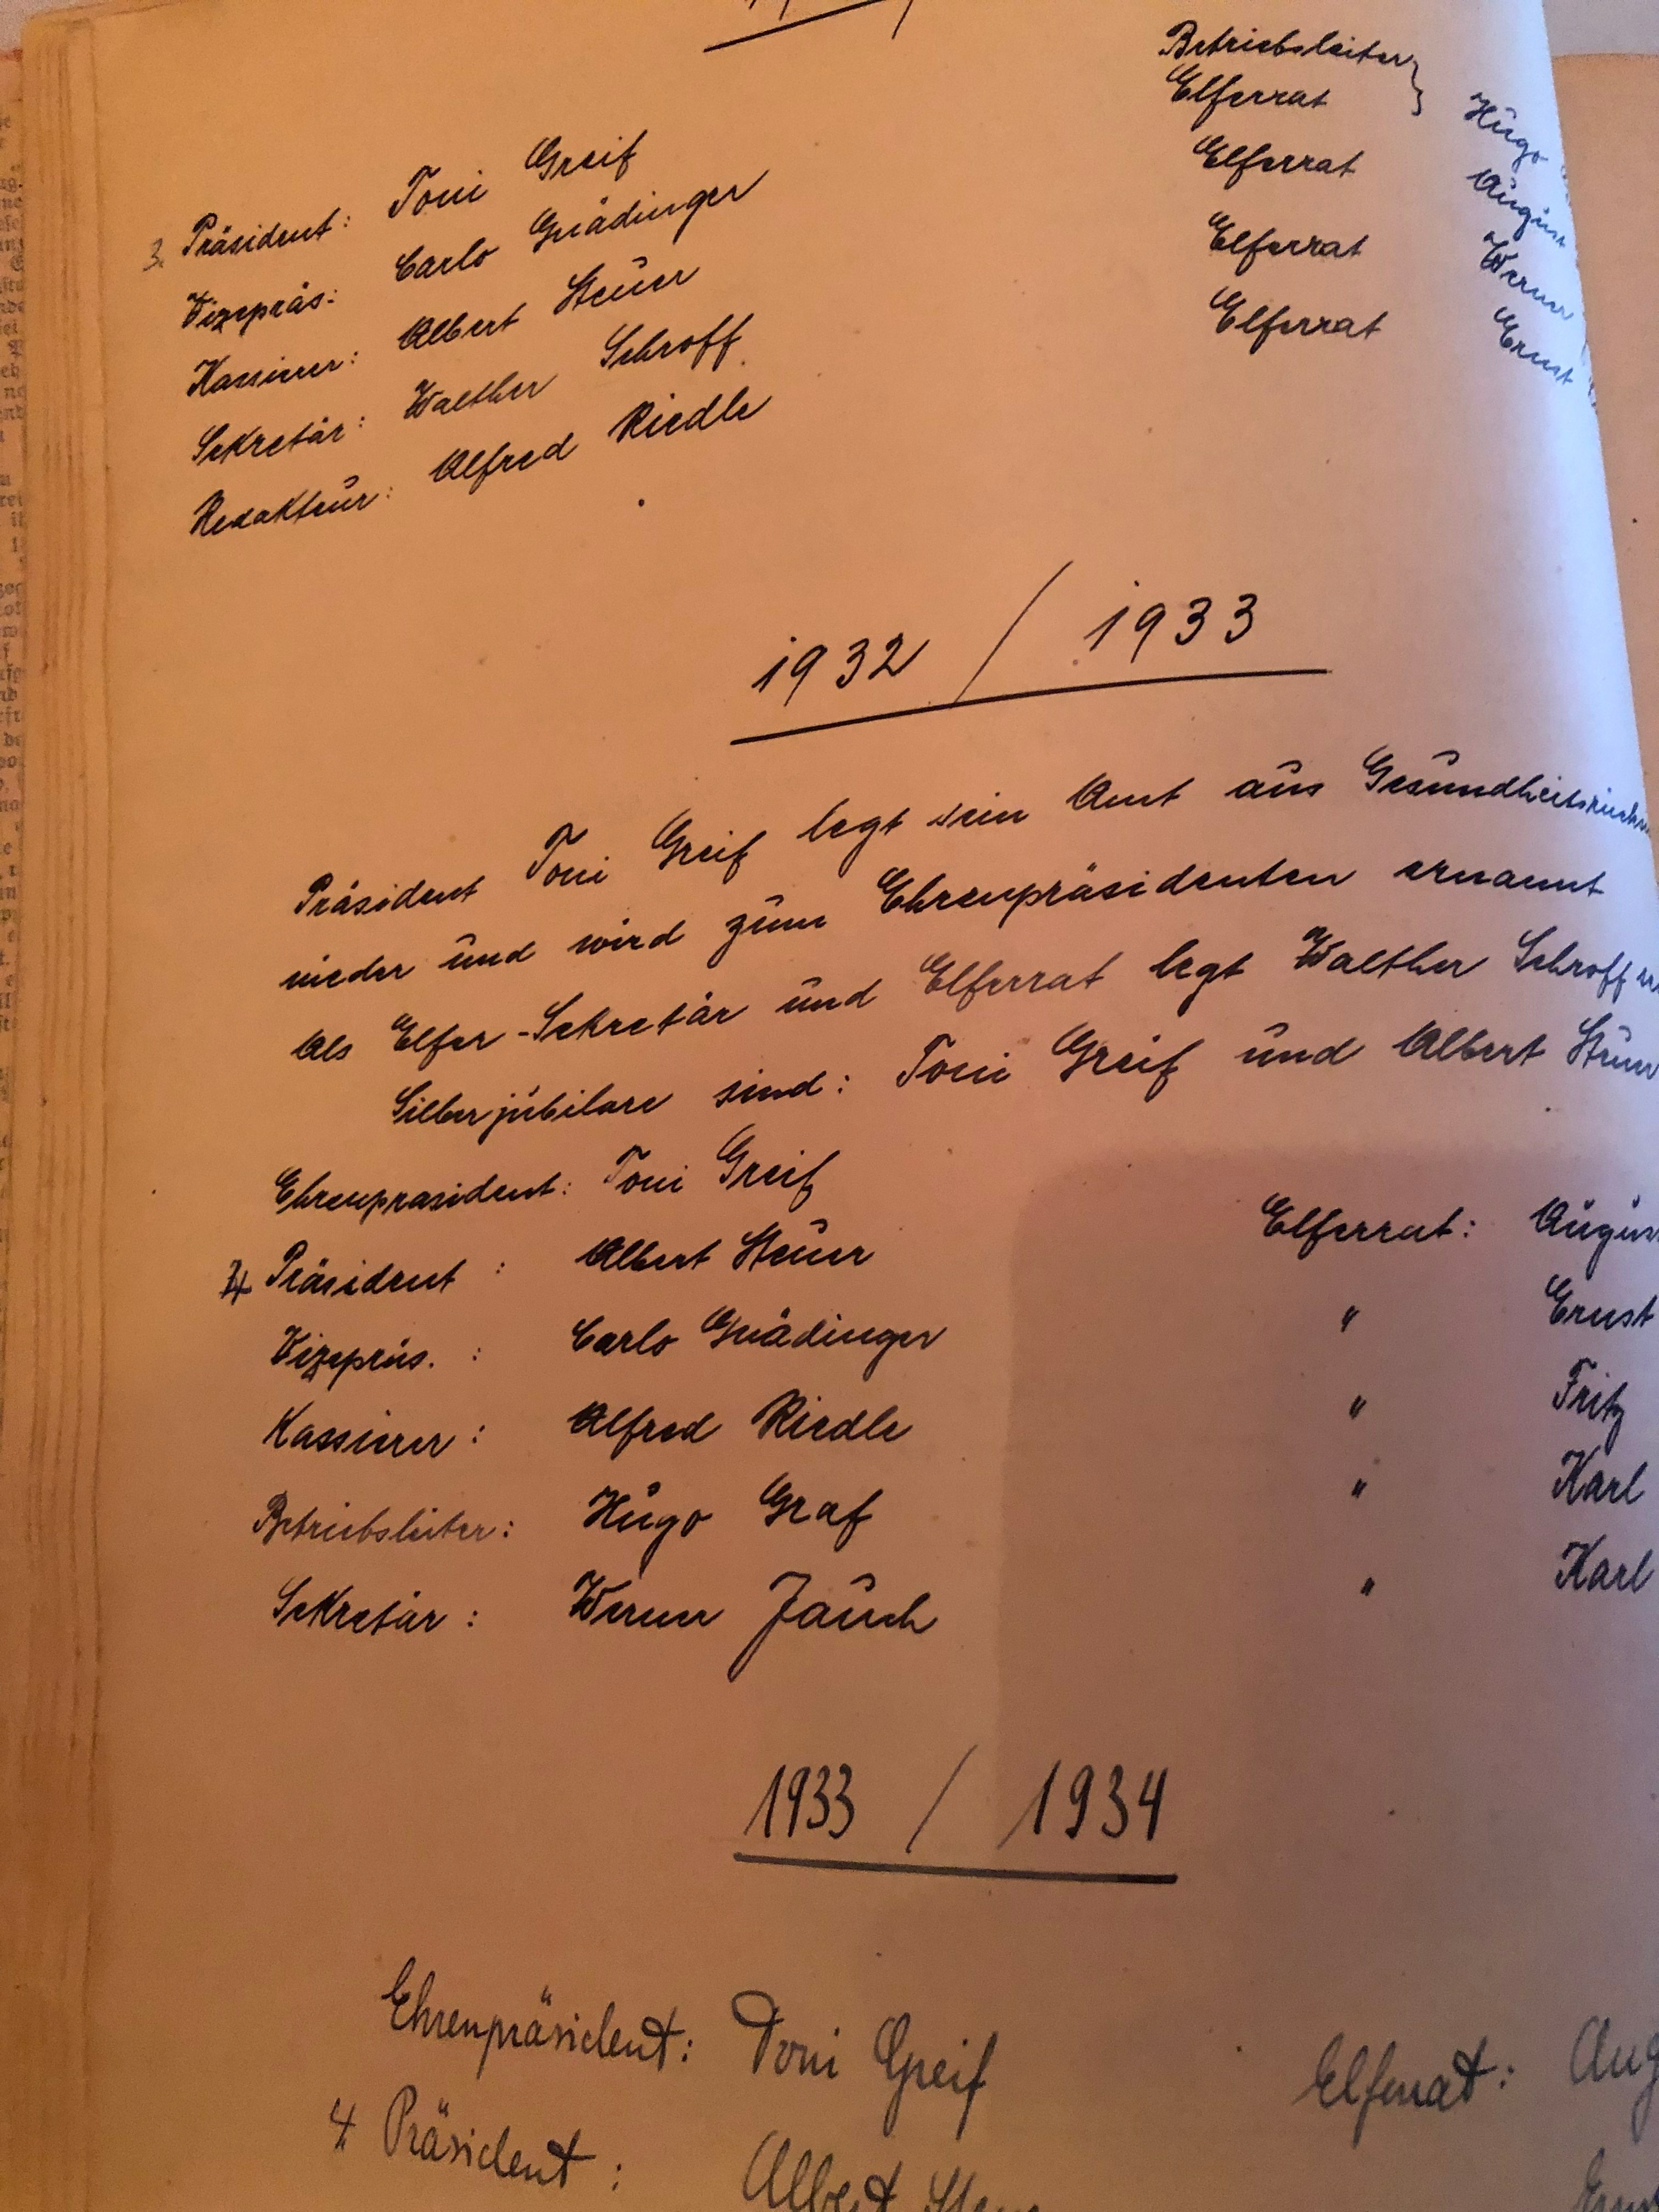 Betriebsleiter }
Elferrat Hugo
3. Präsident: Toni Greif Elferrat August
Vizepräs: Carlo Gnädinger Elferrat Werner
Kassierer: Albert Steuer Elferrat Ernst
Sekretär: Walther Schroff
Redakteur: Alfred Riedle
1932 / 1933
Präsident Toni Greif legt sein Amt aus
nieder und wird zum Ehrenpräsidenten ernannt
Als Elfer-Sekretär und Elferrat legt Walther Schroff
Silberjubilare sind: Toni Greif und Albert
Ehrenpräsident: Toni Greif
4 Präsident : Albert Steuer Elferrat:
Vizepräs. : Carlo Gnädinger " Ernst
Kassierer : Alfred Riedle " Fritz
Betriebsleiter: Hugo Graf " Karl
Sekretär : Werner Jauch " Karl
1933 / 1934
Ehrenpräsident: Toni Greif Elferrat:
4 Präsident : Albert